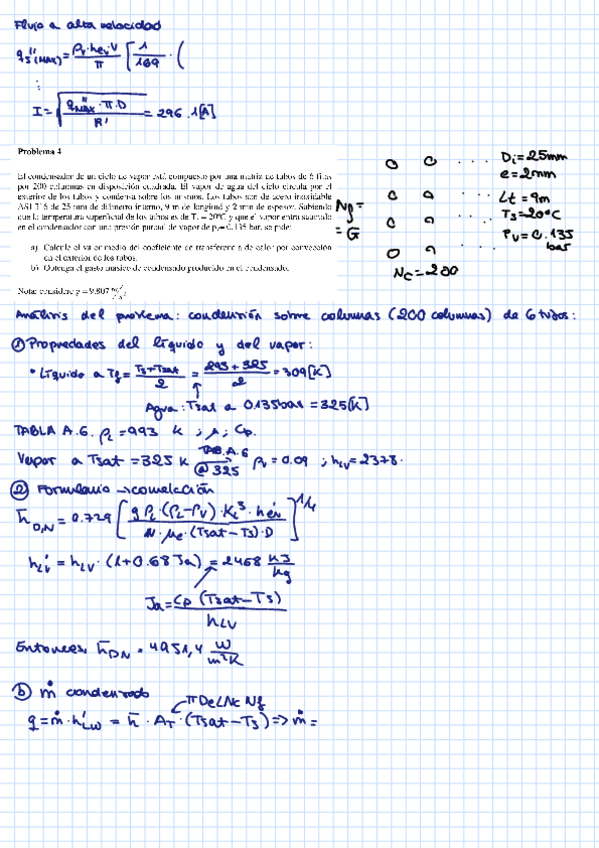 Flujo a alta velocidad
q''s(MAX) = ρv·hev·V / π [ 1/169 · (
:
I = √(q''MAX · π · D / R') = 296.1 [A]
Problema 4
El condensador de un ciclo de vapor está compuesto por una matriz de tubos de 6 filas
por 200 columnas en disposición cuadrada. El vapor de agua del ciclo circula por el
exterior de los tubos y condensa sobre los mismos. Los tubos son de acero inoxidable
AISI 316 de 25 mm de diámetro interno, 9 m de longitud y 2 mm de espesor. Sabiendo
que la temperatura superficial de los tubos es de Ts = 20ºC y que el vapor entra saturado
en el condensador con una presión parcial de vapor de pv= 0.135 bar, se pide:
a) Calcule el valor medio del coeficiente de transferencia de calor por convección
en el exterior de los tubos.
b) Obtenga el gasto másico de condensado producido en el condensador.
Nota: considere g = 9.807 m/s²
Di = 25mm
e = 2mm
Lt = 9m
Ts = 20ºC
Pv = 0.135 bar
Nf = 6
Nc = 200
Análisis del problema: condensión sobre columnas (200 columnas) de 6 tubos:
① Propiedades del líquido y del vapor:
• Líquido a Tf = (Ts + Tsat)/2 = (293 + 325)/2 = 309 [K]
Agua: Tsat a 0.135 bar = 325 [K]
TABLA A.6. ρL = 993 K ; μ ; Cp.
Vapor a Tsat = 325 K TAB. A.6 @ 325 → ρv = 0.09 ; hLV = 2378.
② Formulario → correlación
h̄D,N = 0.729 [ g ρL · (ρL - ρV) · KL³ · h'ev / N · μe · (Tsat - Ts) · D ]^1/4
h'LV = hLV · (1 + 0.68 Ja) = 2468 KJ/Kg
Ja = Cp (Tsat - Ts) / hLV
Entonces, h̄DN = 4951,4 W/m²K
ⓑ ṁ condensado
π De L Nc Nf
q = ṁ · h'LV = h̄ · AT · (Tsat - Ts) => ṁ =